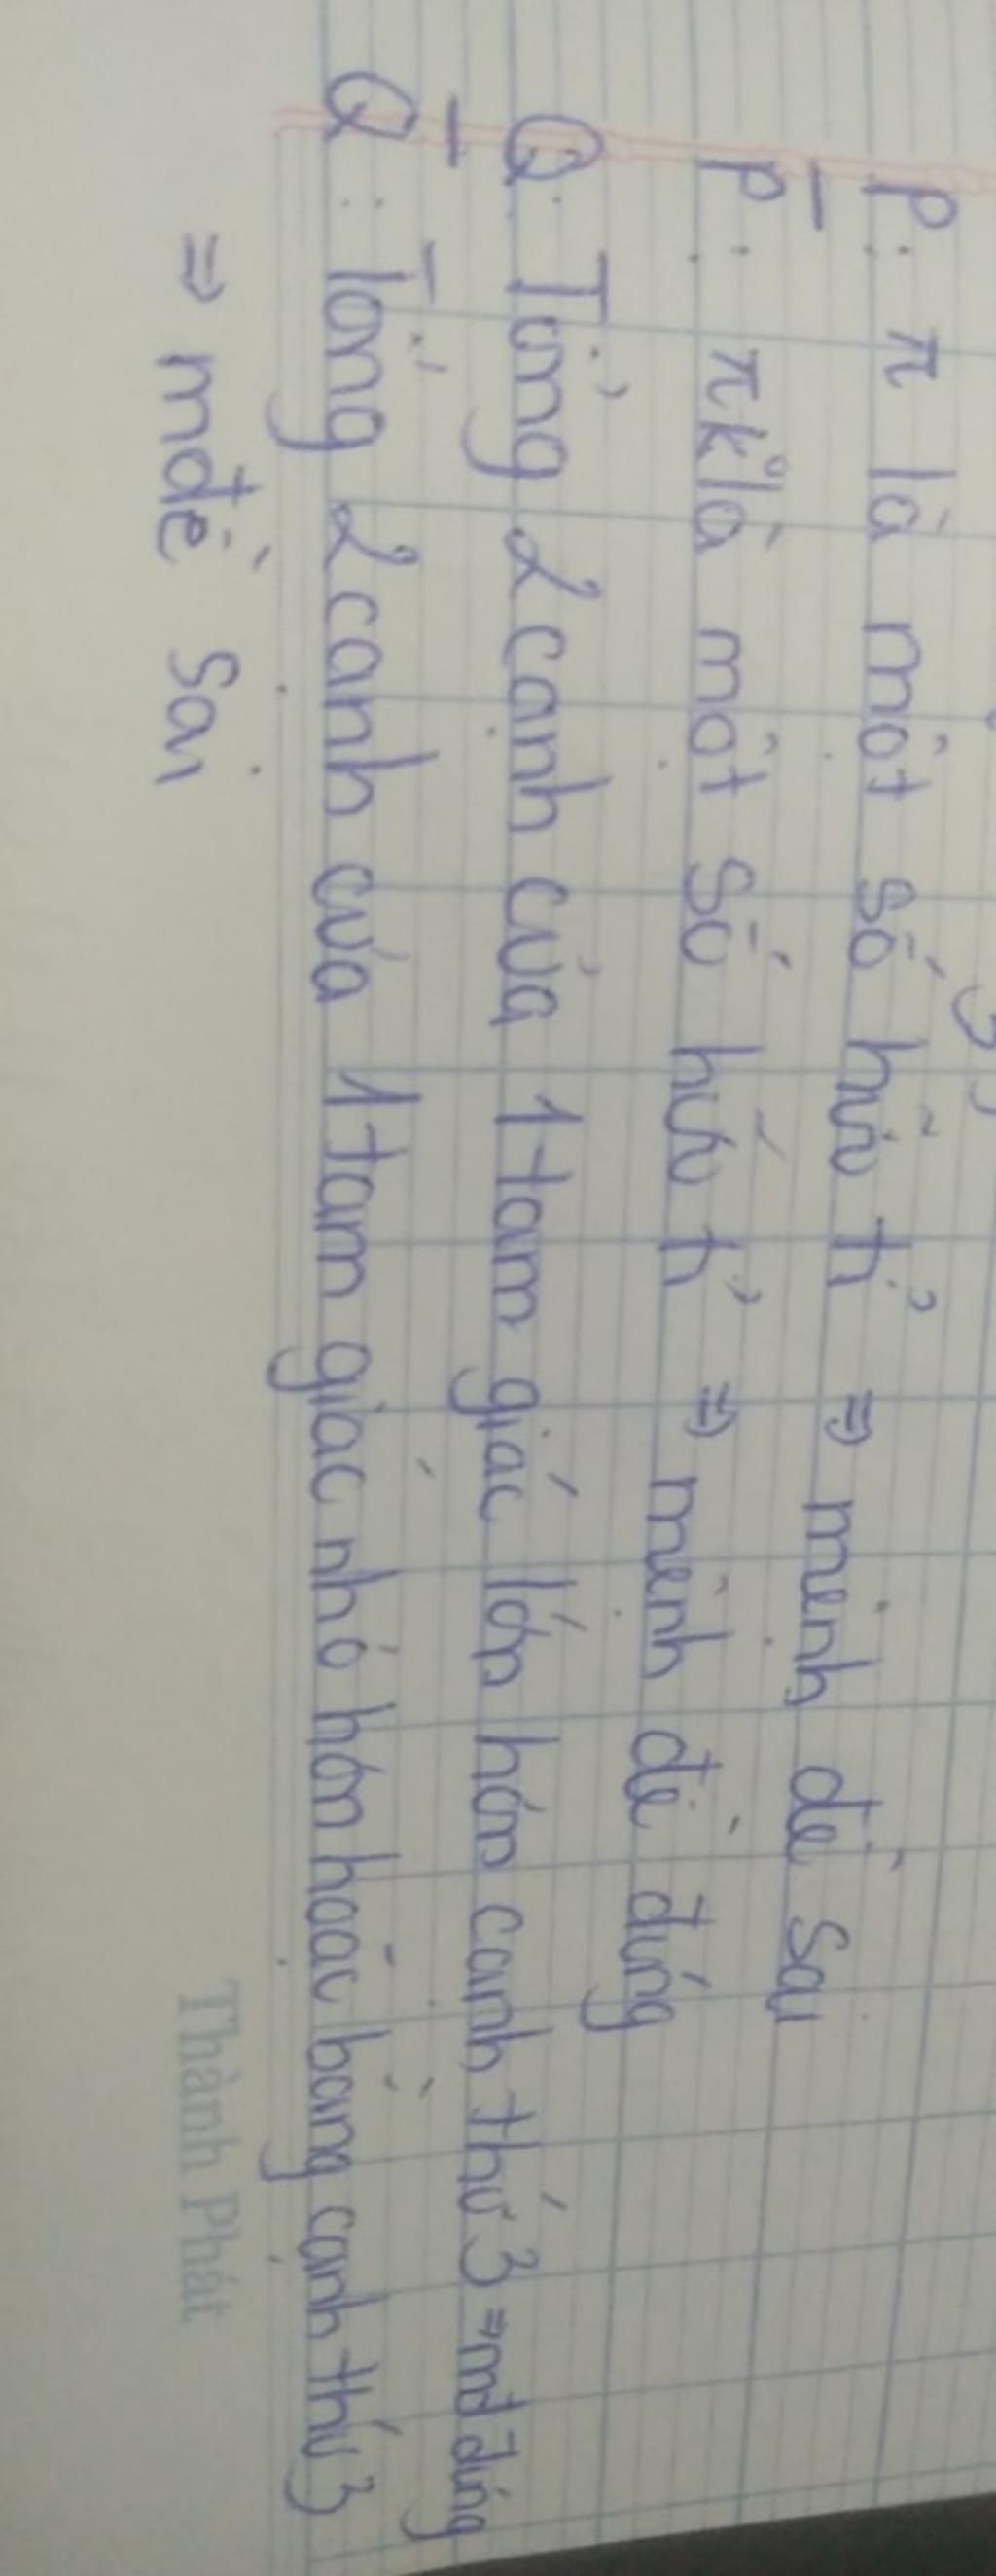 P: π là một số hữu tỉ ⇒ mệnh đề sai
P̅: π kº là một số hữu tỉ ⇒ mệnh đề đúng
Q: Tổng 2 cạnh của 1 tam giác lớn hơn cạnh thứ 3 ⇒ mđ đúng
Q̅: Tổng 2 cạnh của 1 tam giác nhỏ hơn hoặc bằng cạnh thứ 3
⇒ mđề sai
Thành Phát